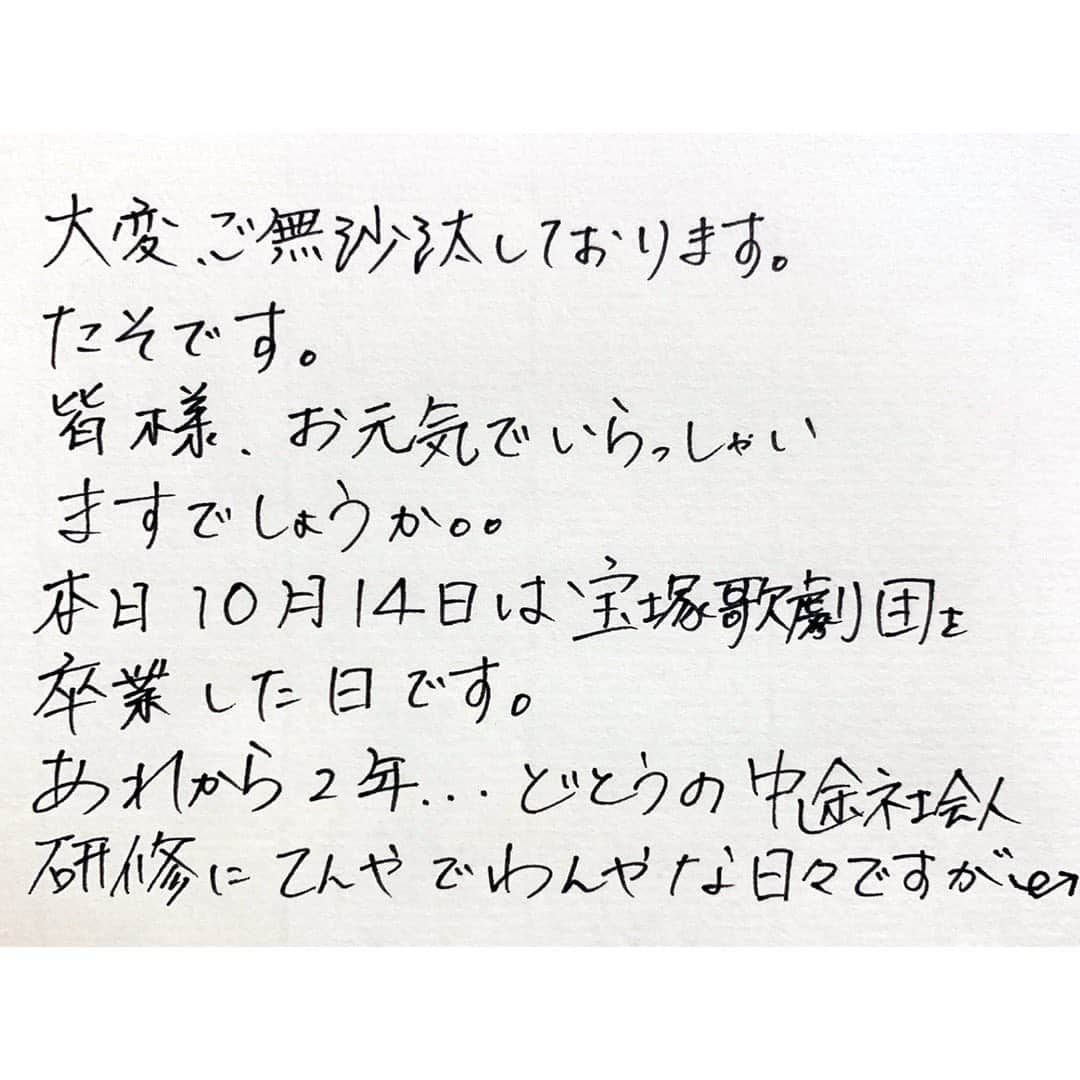 大変、ご無沙汰しております。
たそです。
皆様、お元気でいらっしゃい
ますでしょうか。。
本日10月14日は宝塚歌劇団を
卒業した日です。
あれから2年...どとうの中途社会人
研修にてんやでわんやな日々ですが